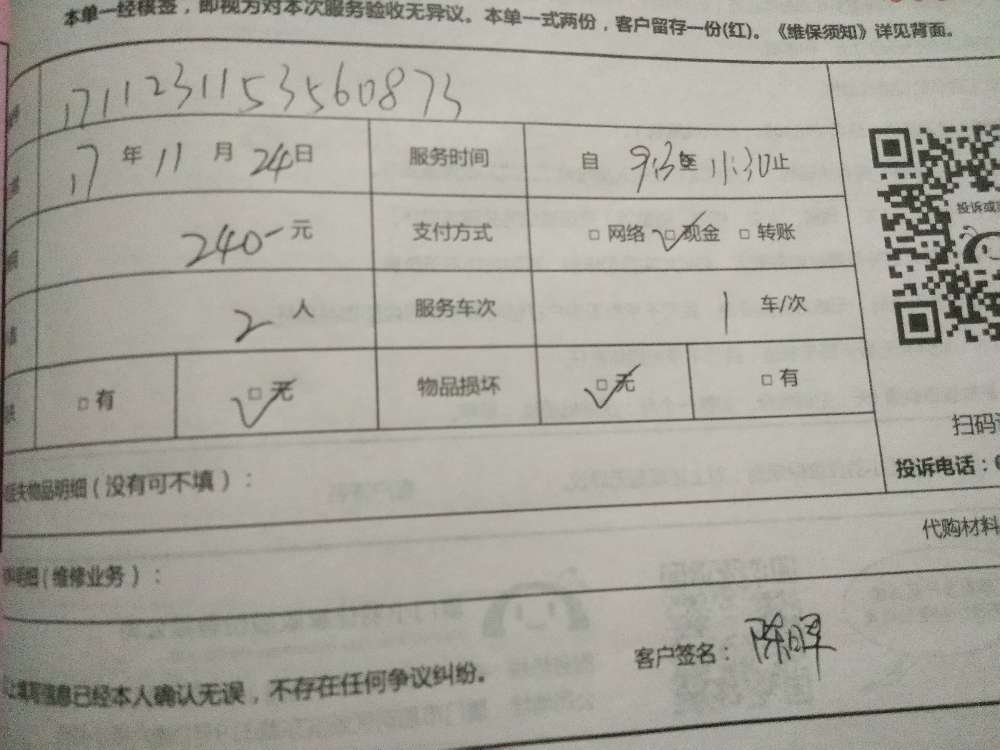 本单一经核签，即视为对本次服务验收无异议。本单一式两份，客户留存一份(红)。《维保须知》详见背面。
171123115356 0873
17年11月24日 服务时间 自9:3至11:30止
240-元 支付方式 □网络 □现金 □转账
2人 服务车次 1车/次
□有 □无 物品损坏 □无 □有
投诉或
扫码
失物品明细（没有可不填）：
投诉电话：
代购材料
明细（维修业务）：
客户签名：陈晖
信息已经本人确认无误，不存在任何争议纠纷。